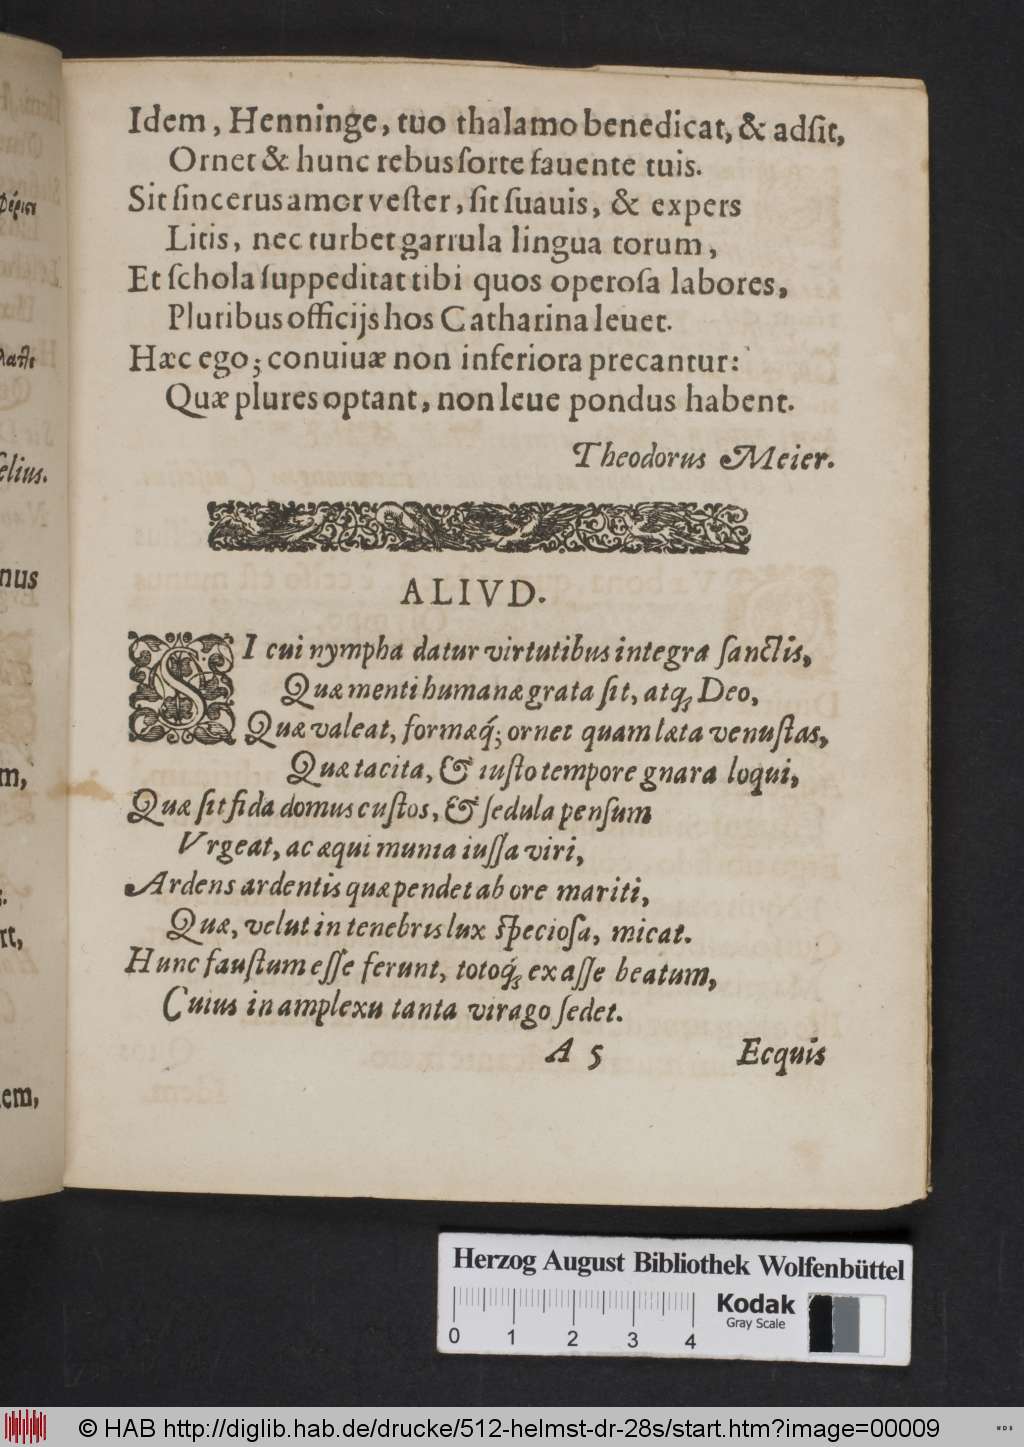 Idem, Henninge, tuo thalamo benedicat, & adſit,
Ornet & hunc rebus ſorte fauente tuis.
Sit ſincerus amor veſter, ſit ſuauis, & expers
Litis, nec turbet garrula lingua torum,
Et ſchola ſuppeditat tibi quos operoſa labores,
Pluribus officijs hos Catharina leuet.
Hæc ego; conuiuæ non inferiora precantur:
Quæ plures optant, non leue pondus habent.
Theodorus Meier.
ALIVD.
SI cui nympha datur virtutibus integra ſanctis,
Quæ menti humanæ grata ſit, atq́; Deo,
Quæ valeat, formæq́; ornet quam læta venuſtas,
Quæ tacita, & iuſto tempore gnara loqui,
Quæ ſit fida domus cuſtos, & ſedula penſum
Vrgeat, ac æqui munia iuſſa viri,
Ardens ardentis quæ pendet ab ore mariti,
Quæ, velut in tenebris lux ſpecioſa, micat.
Hunc fauſtum eſſe ferunt, totoq́; ex aſſe beatum,
Cuius in amplexu tanta virago ſedet.
A 5 Ecquis
Herzog August Bibliothek Wolfenbüttel
Kodak
Gray Scale
0 1 2 3 4
© HAB http://diglib.hab.de/drucke/512-helmst-dr-28s/start.htm?image=00009